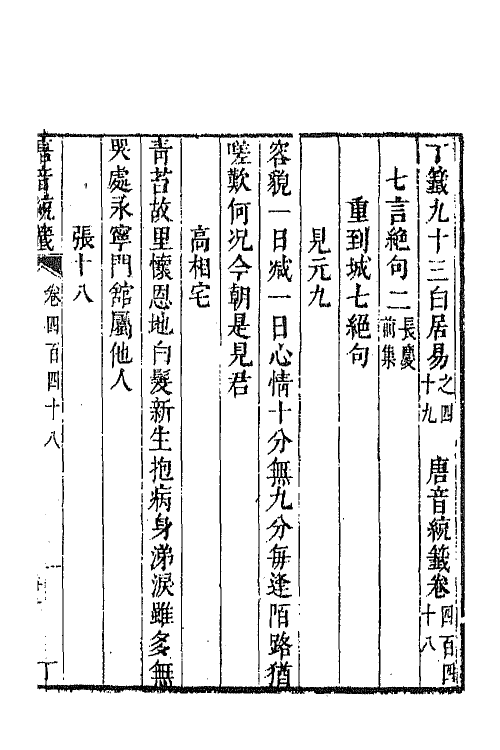 丁籤九十三白居易之四十九　唐音統籤卷四百四十八
七言絕句二長慶前集
重到城七絕句
見元九
容貌一日减一日心情十分無九分每逢陌路猶
嗟歎何况今朝是見君
高相宅
青苔故里懷恩地白髮新生抱病身涕淚雖多無
哭處永寧門館屬他人
張十八
唐音統籤　卷四百四十八　一